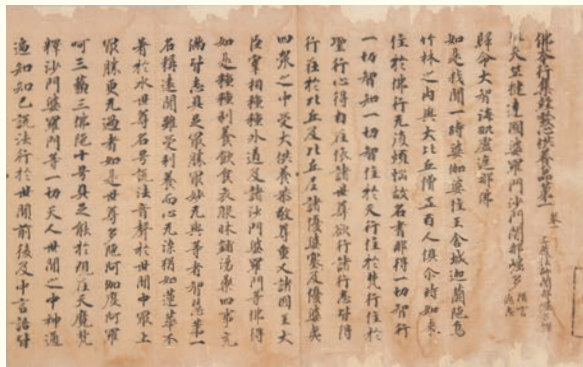 佛本行集經發心供養品第一 卷一
北天竺揵達國婆羅門沙門闍那崛多 隋言
歸命大智海毗盧遮那佛
如是我聞一時婆伽婆住王舍城迦蘭陁鳥
竹林之內與大比丘僧五百人俱尒時如來
住於佛行无復煩惱故名耆那得一切智行
一切智知一切智住於天行住於梵行住於
聖行心得自在依諸世尊欲行諸行悉皆得
行在於比丘及比丘尼諸優婆塞及優婆夷
四衆之中受大供養恭敬尊重又諸國王大
臣宰相種種外道及諸沙門婆羅門等佛得
如是種種利養飲食衣服床鋪湯藥四事充
滿皆悉具足最勝最妙无與等者智慧第一
名稱遠聞雖受利養而心无染猶如蓮華不
著於水世尊名号說法音聲於世間中最上
最勝更无過者如是世尊多陁阿伽度阿羅
呵三藐三佛陁十号具足能於現在天魔梵
釋沙門婆羅門等一切天人世間之中神通
遍知知已說法行於世間前後及中言語皆